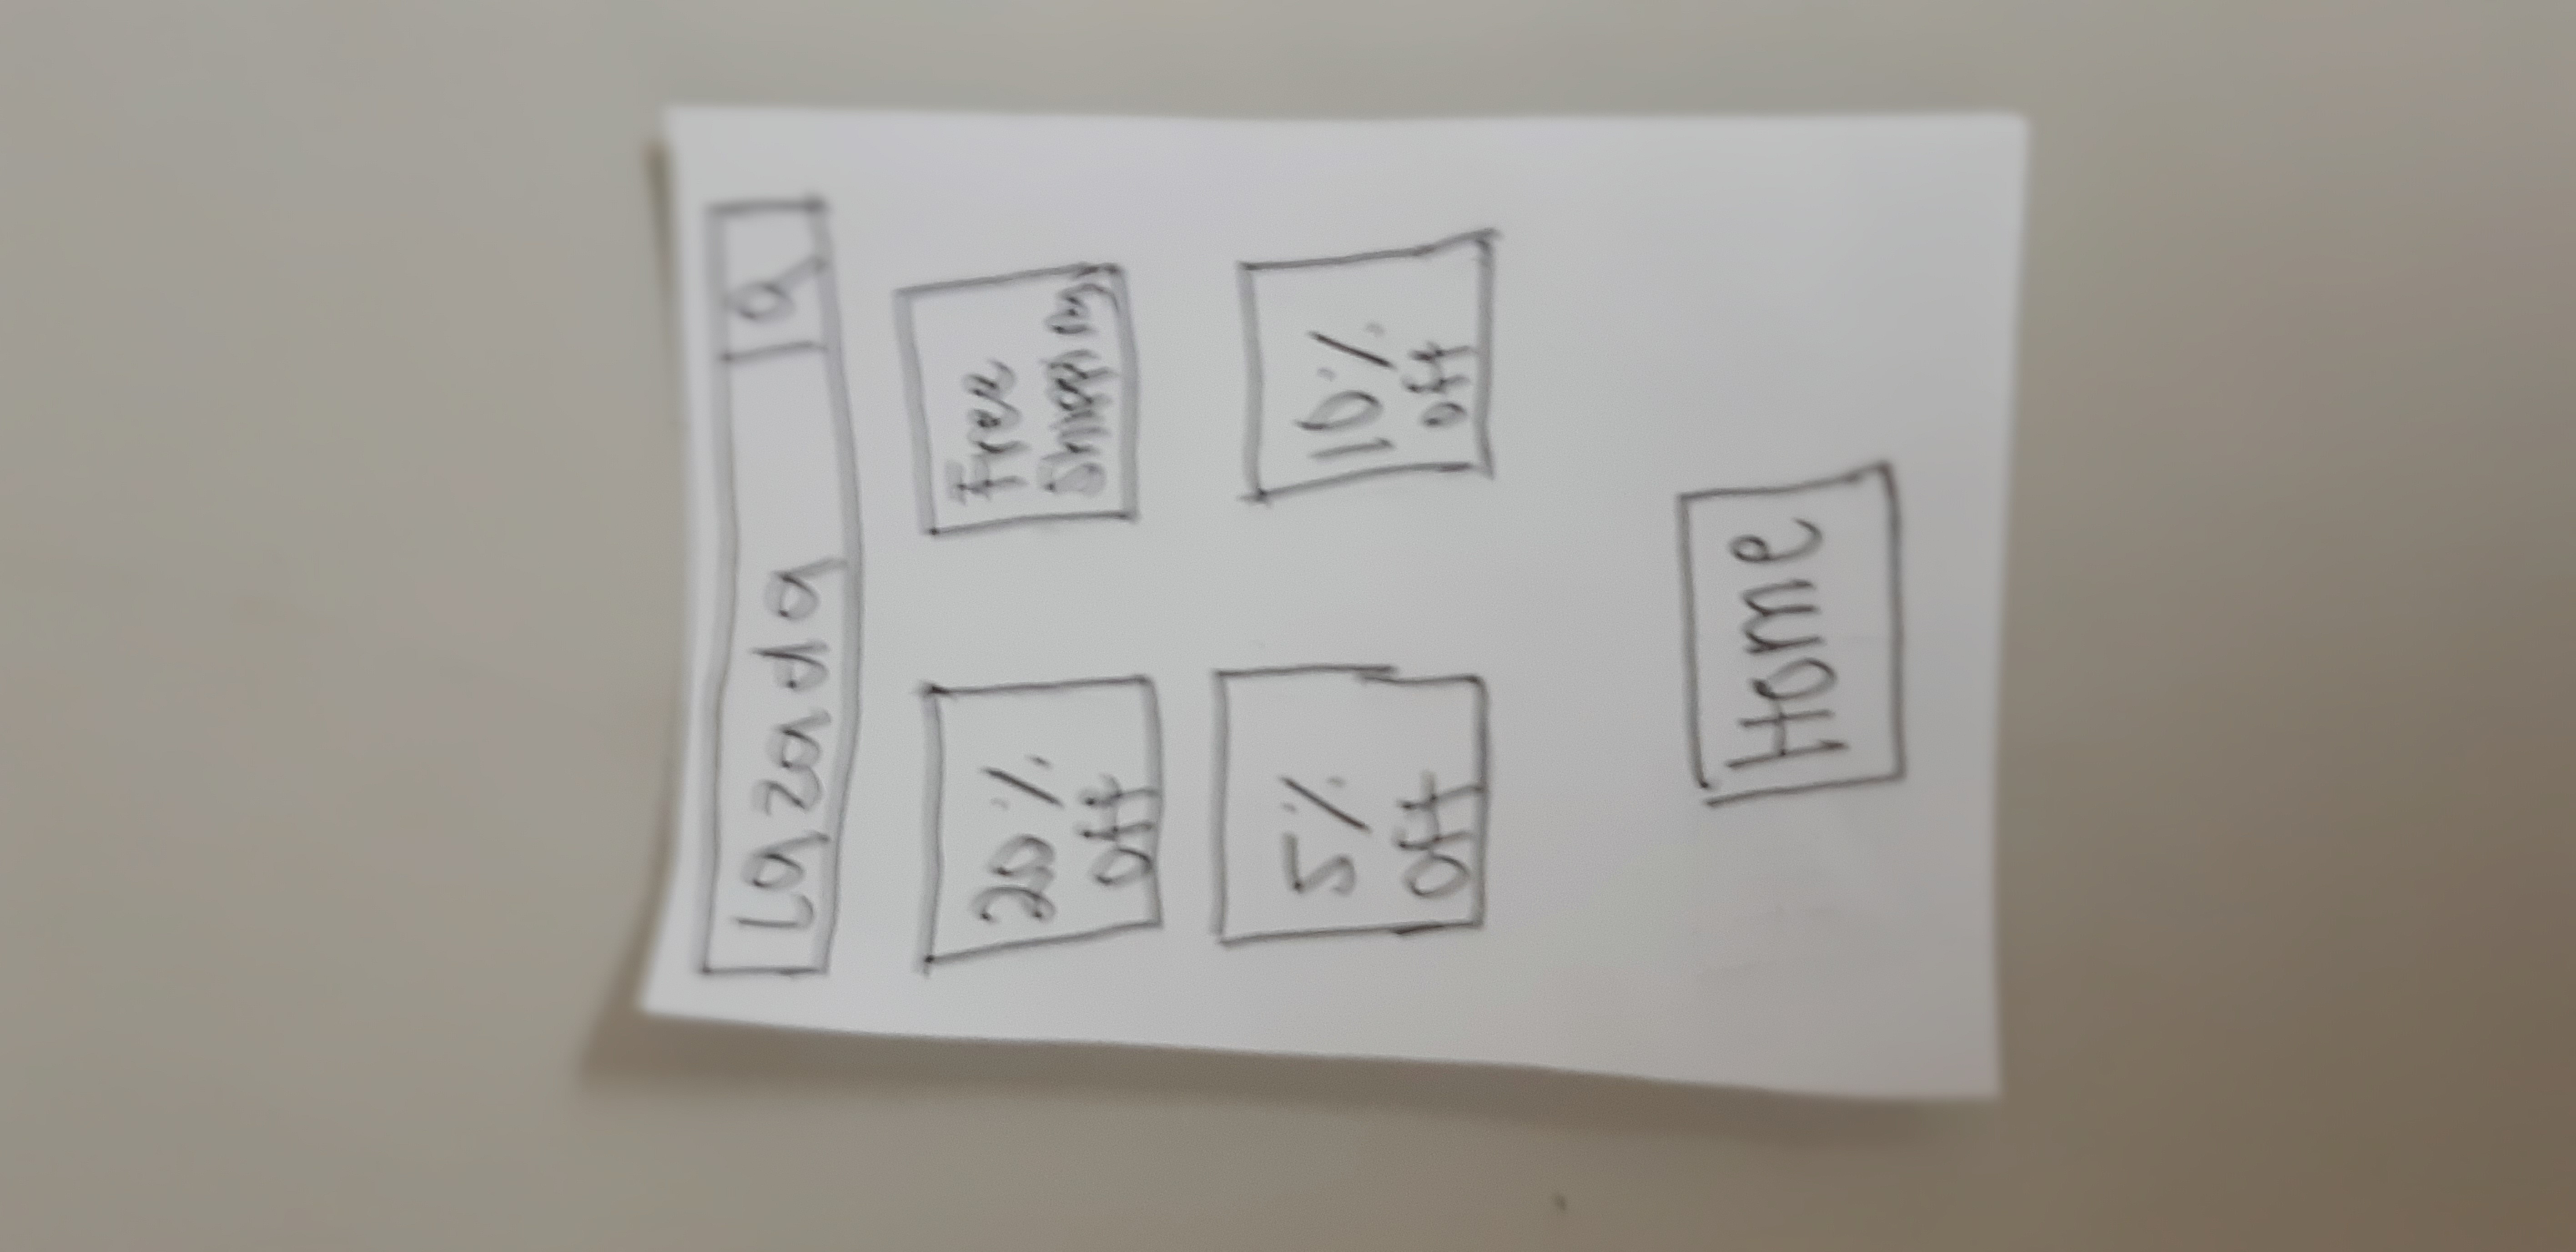 Lazada
20%
off
Free
Shipping
5%
off
10%
off
Home